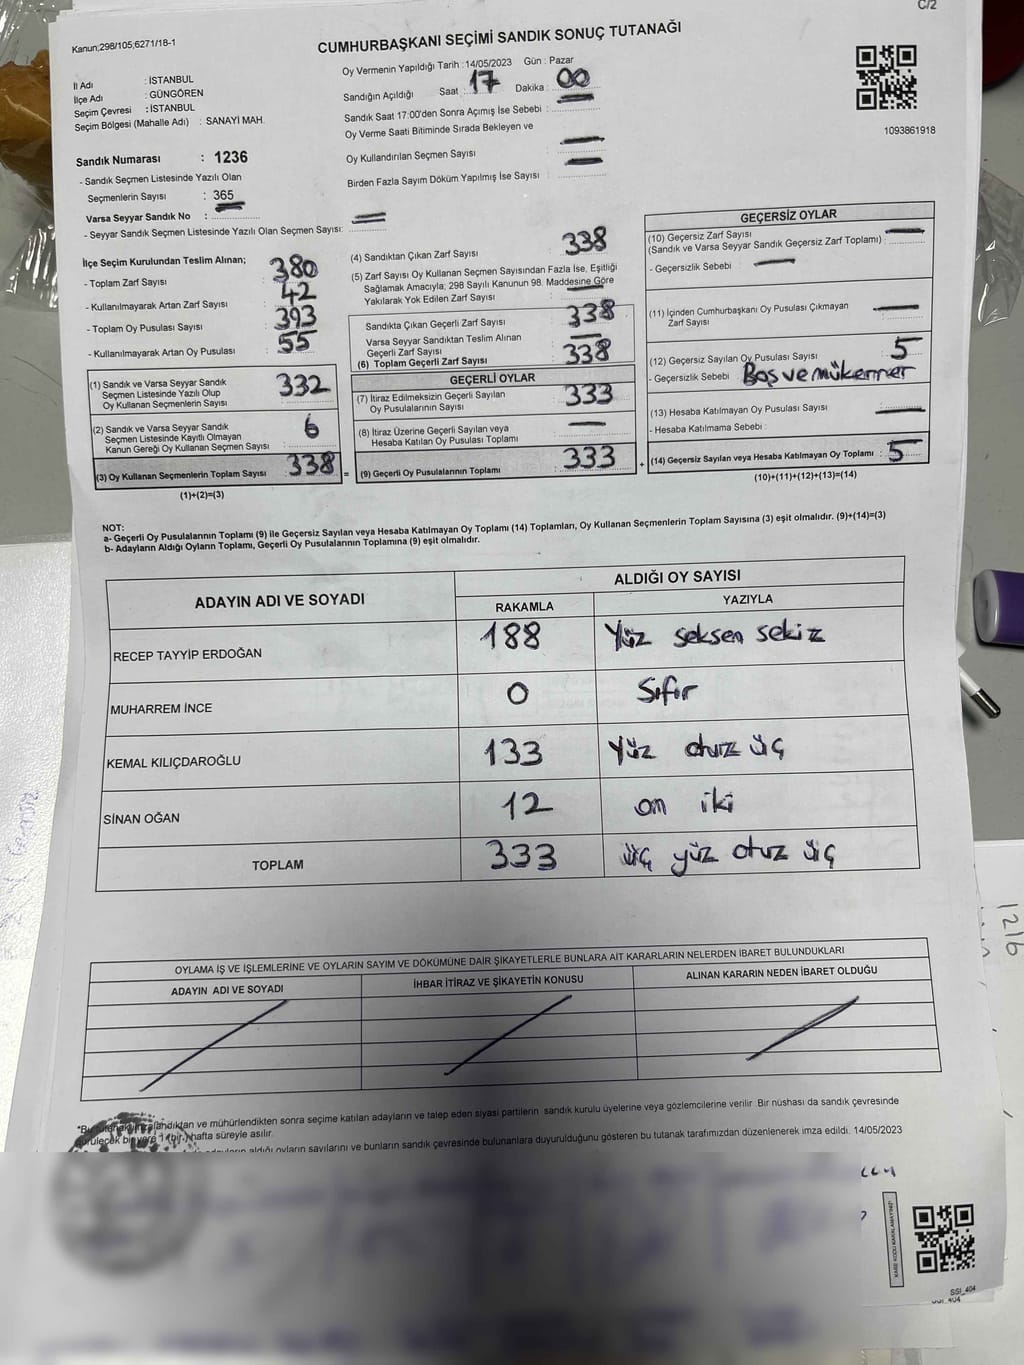 C/2
Kanun;298/105;6271/18-1
CUMHURBAŞKANI SEÇİMİ SANDIK SONUÇ TUTANAĞI
İl Adı : İSTANBUL
İlçe Adı : GÜNGÖREN
Seçim Çevresi : İSTANBUL
Seçim Bölgesi (Mahalle Adı) : SANAYİ MAH.
Oy Vermenin Yapıldığı Tarih :14/05/2023 Gün : Pazar
Sandığın Açıldığı Saat : 17 Dakika : 00
Sandık Saat 17:00'den Sonra Açımış İse Sebebi :
Oy Verme Saati Bitiminde Sırada Bekleyen ve
Oy Kullandırılan Seçmen Sayısı :
Birden Fazla Sayım Döküm Yapılmış İse Sayısı :
1093861918
Sandık Numarası : 1236
- Sandık Seçmen Listesinde Yazılı Olan
Seçmenlerin Sayısı : 365
Varsa Seyyar Sandık No :
- Seyyar Sandık Seçmen Listesinde Yazılı Olan Seçmen Sayısı:
İlçe Seçim Kurulundan Teslim Alınan;
- Toplam Zarf Sayısı : 380
- Kullanılmayarak Artan Zarf Sayısı : 42
- Toplam Oy Pusulası Sayısı : 393
- Kullanılmayarak Artan Oy Pusulası : 55
(1) Sandık ve Varsa Seyyar Sandık
Seçmen Listesinde Yazılı Olup
Oy Kullanan Seçmenlerin Sayısı : 332
(2) Sandık ve Varsa Seyyar Sandık
Seçmen Listesinde Kayıtlı Olmayan
Kanun Gereği Oy Kullanan Seçmen Sayısı : 6
(3) Oy Kullanan Seçmenlerin Toplam Sayısı : 338 =
(1)+(2)=(3)
(4) Sandıktan Çıkan Zarf Sayısı : 338
(5) Zarf Sayısı Oy Kullanan Seçmen Sayısından Fazla İse, Eşitliği
Sağlamak Amacıyla; 298 Sayılı Kanunun 98. Maddesine Göre
Yakılarak Yok Edilen Zarf Sayısı :
Sandıkta Çıkan Geçerli Zarf Sayısı : 338
Varsa Seyyar Sandıktan Teslim Alınan
Geçerli Zarf Sayısı :
(6) Toplam Geçerli Zarf Sayısı : 338
GEÇERLİ OYLAR
(7) İtiraz Edilmeksizin Geçerli Sayılan
Oy Pusulalarının Sayısı : 333
(8) İtiraz Üzerine Geçerli Sayılan veya
Hesaba Katılan Oy Pusulası Toplamı :
(9) Geçerli Oy Pusulalarının Toplamı : 333 +
GEÇERSİZ OYLAR
(10) Geçersiz Zarf Sayısı
(Sandık ve Varsa Seyyar Sandık Geçersiz Zarf Toplamı) :
- Geçersizlik Sebebi :
(11) İçinden Cumhurbaşkanı Oy Pusulası Çıkmayan
Zarf Sayısı :
(12) Geçersiz Sayılan Oy Pusulası Sayısı : 5
- Geçersizlik Sebebi : Boş ve mükerrer
(13) Hesaba Katılmayan Oy Pusulası Sayısı :
- Hesaba Katılmama Sebebi :
(14) Geçersiz Sayılan veya Hesaba Katılmayan Oy Toplamı : 5
(10)+(11)+(12)+(13)=(14)
NOT:
a- Geçerli Oy Pusulalarının Toplamı (9) ile Geçersiz Sayılan veya Hesaba Katılmayan Oy Toplamı (14) Toplamları, Oy Kullanan Seçmenlerin Toplam Sayısına (3) eşit olmalıdır. (9)+(14)=(3)
b- Adayların Aldığı Oyların Toplamı, Geçerli Oy Pusulalarının Toplamına (9) eşit olmalıdır.
ADAYIN ADI VE SOYADI ALDIĞI OY SAYISI
RAKAMLA YAZIYLA
RECEP TAYYİP ERDOĞAN 188 Yüz seksen sekiz
MUHARREM İNCE 0 Sıfır
KEMAL KILIÇDAROĞLU 133 Yüz otuz üç
SİNAN OĞAN 12 on iki
TOPLAM 333 üç yüz otuz üç
OYLAMA İŞ VE İŞLEMLERİNE VE OYLARIN SAYIM VE DÖKÜMÜNE DAİR ŞİKAYETLERLE BUNLARA AİT KARARLARIN NELERDEN İBARET BULUNDUKLARI
ADAYIN ADI VE SOYADI İHBAR İTİRAZ VE ŞİKAYETİN KONUSU ALINAN KARARIN NEDEN İBARET OLDUĞU
ve mühürlendikten sonra seçime katılan adayların ve talep eden siyasi partilerin sandık kurulu üyelerine veya gözlemcilerine verilir. Bir nüshası da sandık çevresinde
görülecek bir yere 1 (bir) hafta süreyle asılır.
aldığı oyların sayılarını ve bunların sandık çevresinde bulunanlara duyurulduğunu gösteren bu tutanak tarafımızdan düzenlenerek imza edildi. 14/05/2023
KARE KODU KARALAMAYINIZ!
SSI_404
1216